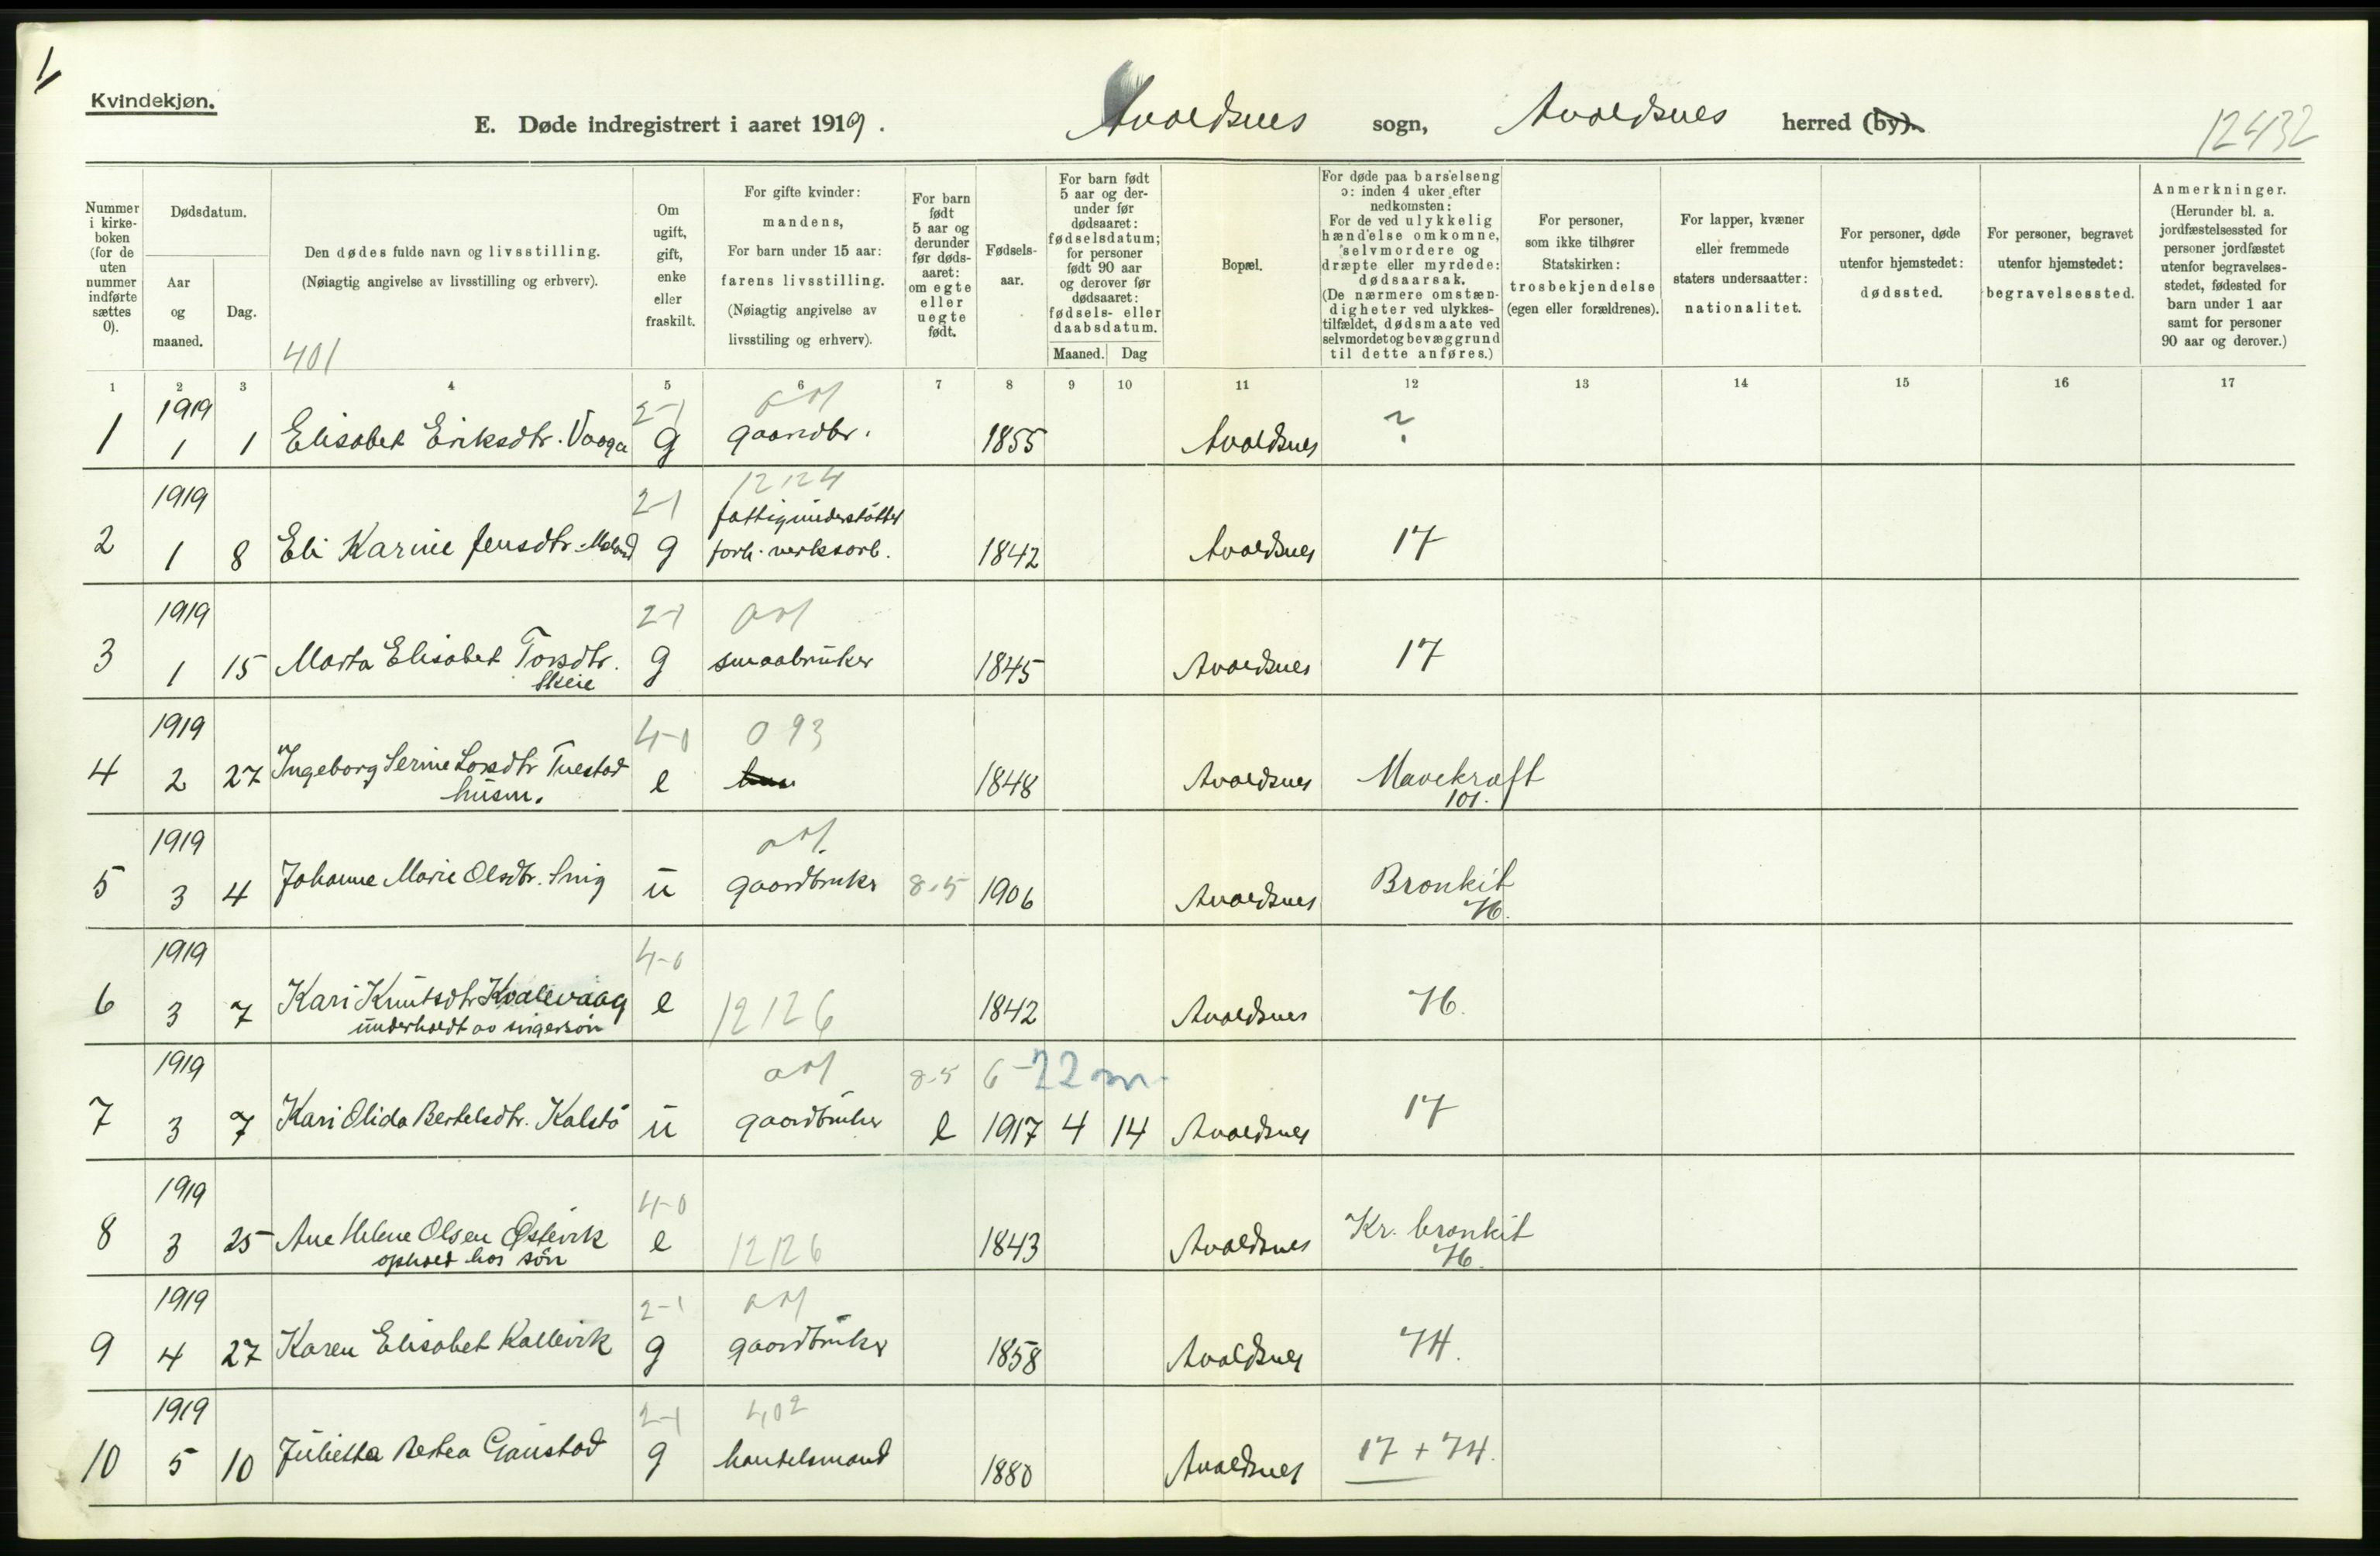 1
Kvindekjøn.
E. Døde indregistrert i aaret 1919. Avaldsnes sogn, Avaldsnes herred (by). 12432
Nummer i kirkeboken (for de uten nummer indførte sættes 0).
Dødsdatum.
Aar og maaned.
Dag.
Den dødes fulde navn og livsstilling.
(Nøiagtig angivelse av livsstilling og erhverv).
401
Om ugift, gift, enke eller fraskilt.
For gifte kvinder: mandens,
For barn under 15 aar: farens livsstilling.
(Nøiagtig angivelse av livsstiling og erhverv).
For barn født 5 aar og derunder før dødsaaret: om egte eller uegte født.
Fødselsaar.
For barn født 5 aar og derunder før dødsaaret: fødselsdatum; for personer født 90 aar og derover før dødsaaret: fødsels- eller daabsdatum.
Maaned. Dag
Bopæl.
For døde paa barselseng ɔ: inden 4 uker efter nedkomsten:
For de ved ulykkelig hændelse omkomne, selvmordere og dræpte eller myrdede: dødsaarsak.
(De nærmere omstændigheter ved ulykkestilfældet, dødsmaate ved selvmordet og bevæggrund til dette anføres.)
For personer, som ikke tilhører Statskirken: trosbekjendelse (egen eller forældrenes).
For lapper, kvæner eller fremmede staters undersaatter: nationalitet.
For personer, døde utenfor hjemstedet: dødssted.
For personer, begravet utenfor hjemstedet: begravelsessted.
Anmerkninger.
(Herunder bl. a. jordfæstelsessted for personer jordfæstet utenfor begravelsesstedet, fødested for barn under 1 aar samt for personer 90 aar og derover.)
1 2 3 4 5 6 7 8 9 10 11 12 13 14 15 16 17
1919 2-1
1 1 1 Elisabet Eriksdtr. Vaaga g gaardbr. 1855 Avaldsnes ?
1919 2-1 12124
fattigunderstøttet
2 1 8 Eli Karine Jensdtr. g forh. verksarb. 1842 Avaldsnes 17
1919 2-1
3 1 15 Marta Elisabet Torsdtr. g smaabruker 1845 Avaldsnes 17
Skeie
1919 4-0 093
4 2 27 Ingeborg Serine Larsdtr Tuestad e 1848 Avaldsnes Mavekræft
husm. 101.
1919
5 3 4 Johanne Marie Olsdtr. Snig u gaardbruker 8.5 1906 Avaldsnes Bronkit
76.
1919 4-0
6 3 7 Kari Knutsdtr Kvalevaag e 12126 1842 Avaldsnes 76.
underholdt av svigersøn
1919 8.5 6 22 m.
7 3 7 Kari Olida Bertelsdtr. Kalstø u gaardbruker e 1917 4 14 Avaldsnes 17
1919 4-0
8 3 25 Ane Helene Olsen Østevik e 12126 1843 Avaldsnes Kr. bronkit
ophold hos søn 76.
1919 2-1
9 4 27 Karen Elisabet Kallevik g gaardbruker 1858 Avaldsnes 74.
1919 2-1 402
10 5 10 Julietta Betea Gaustad g handelsmand 1880 Avaldsnes 17 + 74.